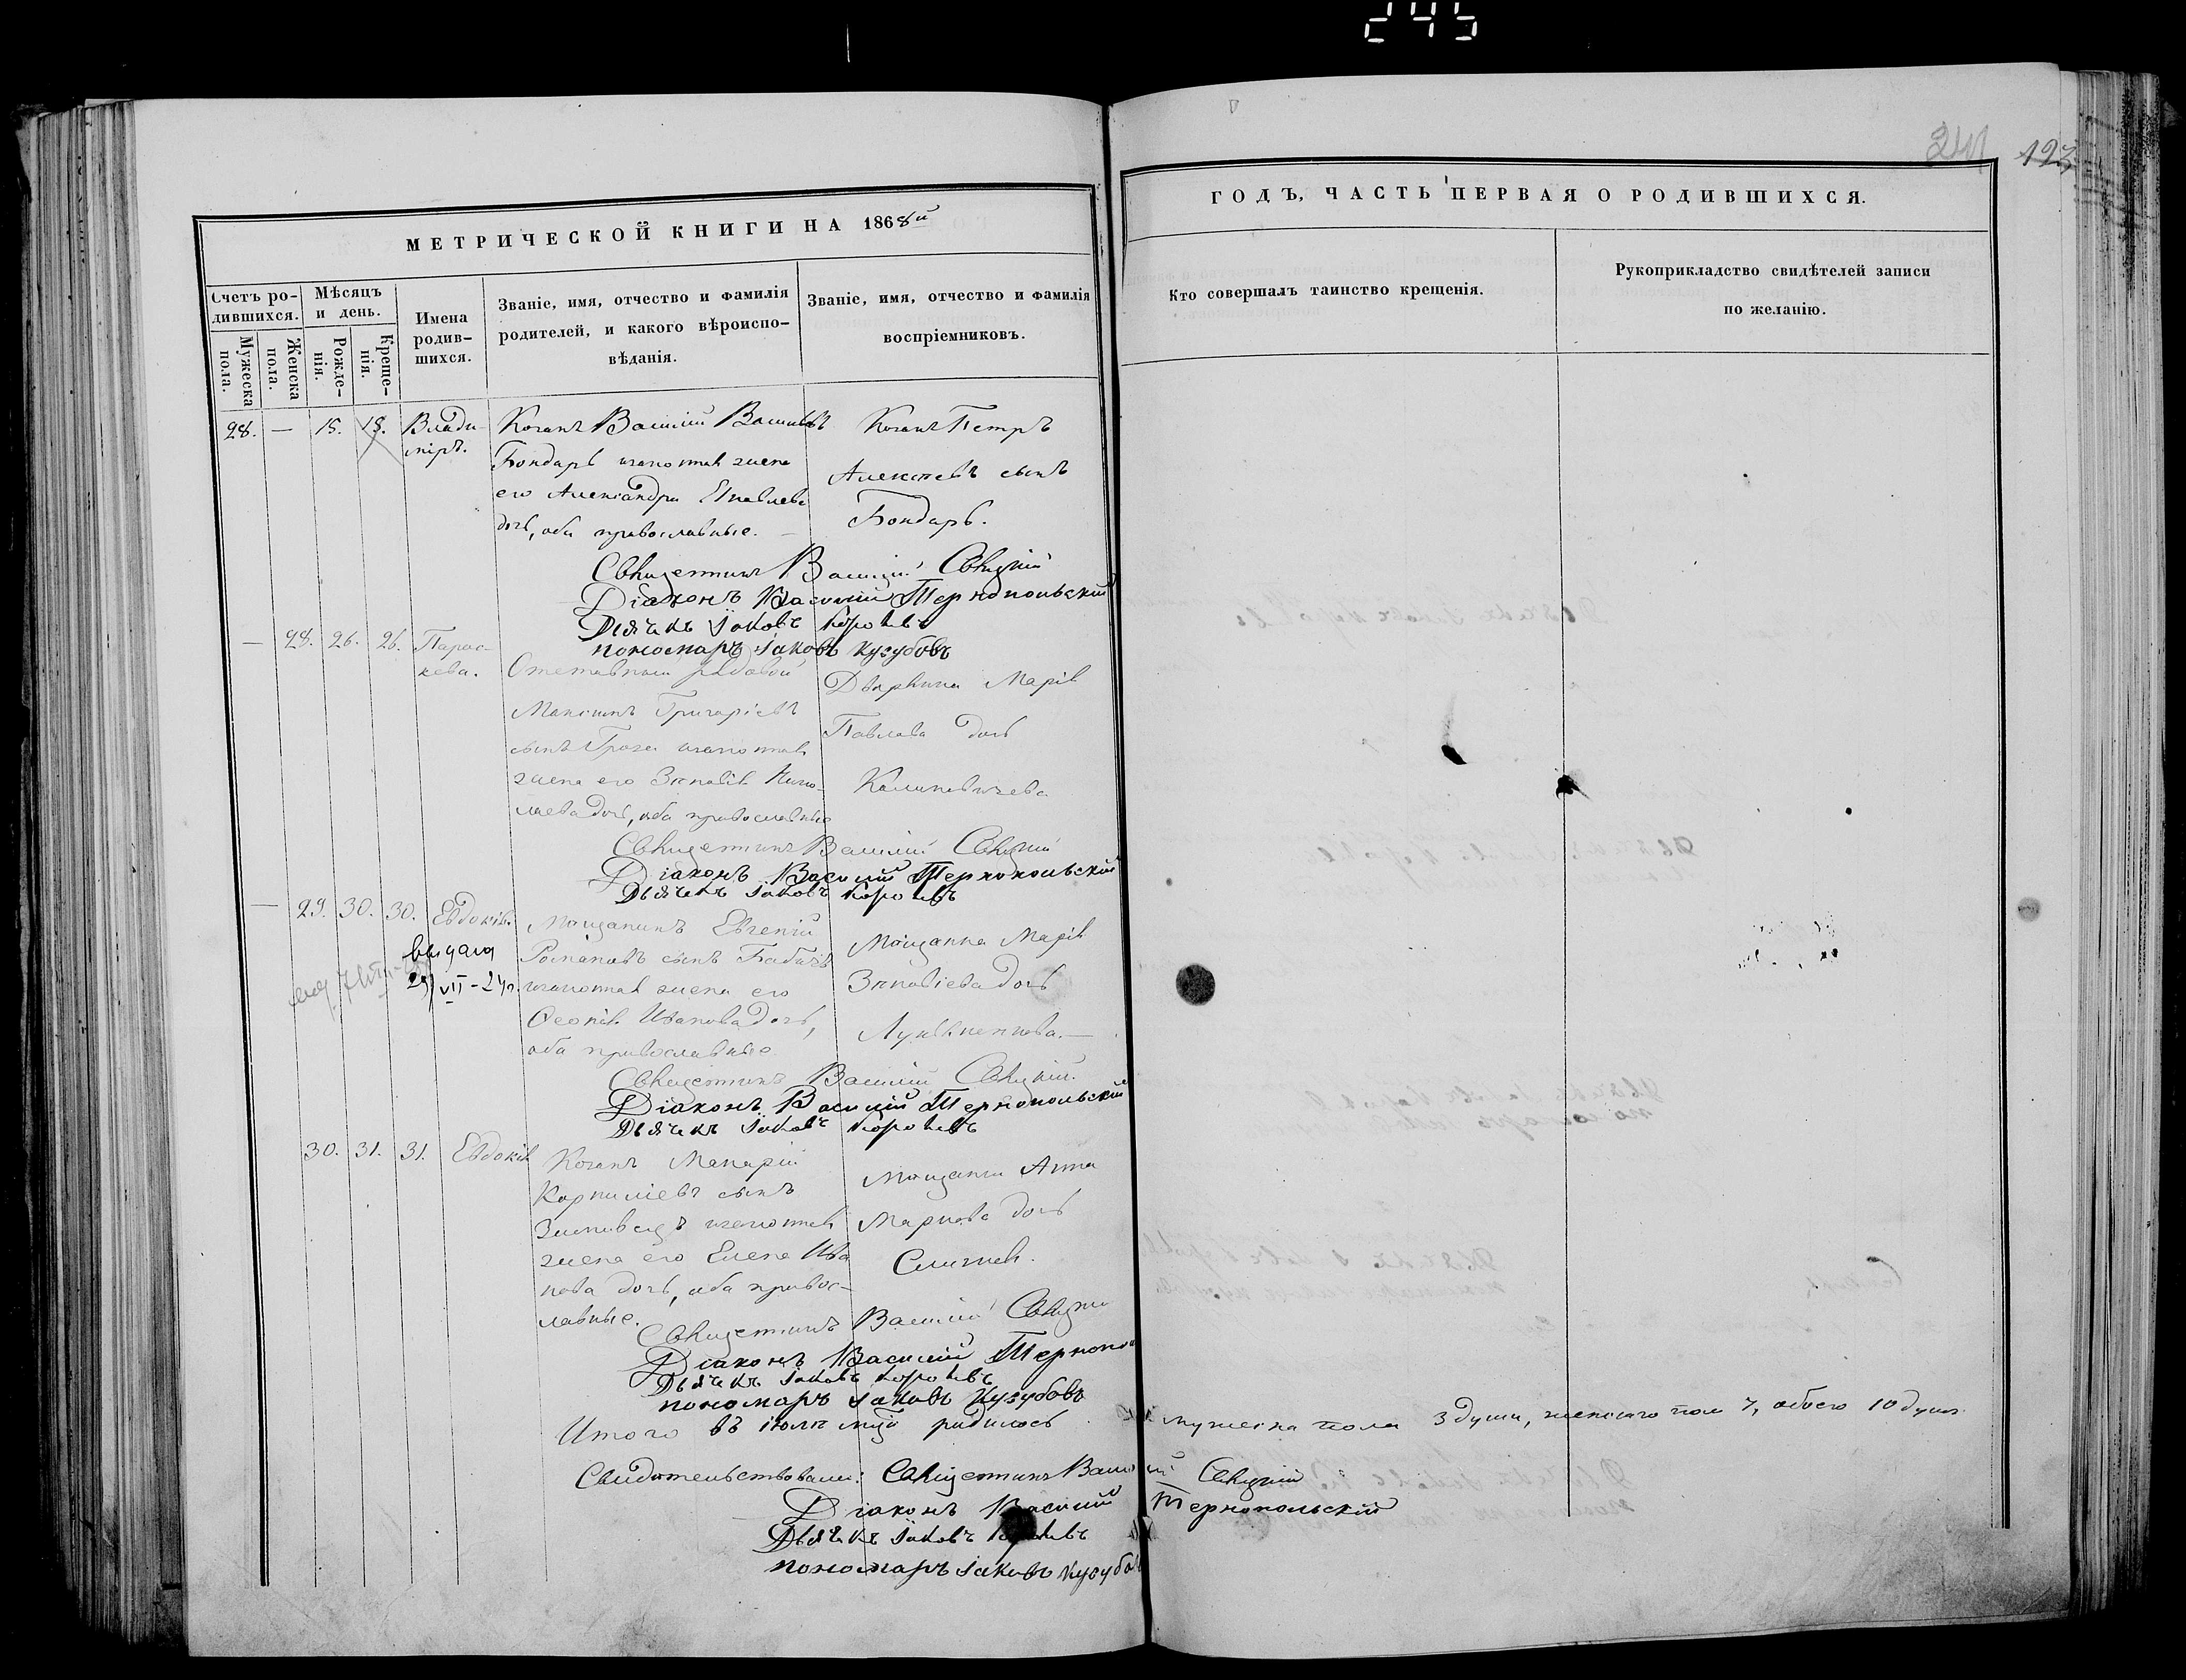 245
241
123
МЕТРИЧЕСКОЙ КНИГИ НА 1868й
ГОДЪ, ЧАСТЬ ПЕРВАЯ О РОДИВШИХСЯ.
Счетъ ро-
дившихся.
Мужеска
пола.
Женска
пола.
Мѣсяцъ
и день.
Рожде-
нія.
Креще-
нія.
Имена
родив-
шихся.
Званіе, имя, отчество и фамилія
родителей, и какого вѣроиспо-
вѣданія.
Званіе, имя, отчество и фамилія
воспріемниковъ.
Кто совершалъ таинство крещенія.
Рукоприкладство свидѣтелей записи
по желанію.
28. — 15. 18. Влади-
міръ.
Козакъ Василій Васильевъ
Бондарь законная жена
его Александра
дочь, оба православные. —
Козакъ Петръ
Алексѣевъ сынъ
Бондарь.
Священникъ Василій
Діаконъ Василій Тернопольскій
Дьячекъ Іаковъ
пономарь Іаковъ Кузубовъ
— 28. 26. 26. Парас-
кева.
Отставный рядовой
Максимъ Григоріевъ
сынъ законная
жена его Зиновія Нико-
лаева дочь, оба православные
Дворянка Марія
Павлова дочь
Калиновичева
Священникъ Василій
Діаконъ Василій Тернопольскій
Дьячекъ Іаковъ
— 29. 30. 30. Евдокія.
выдана
29/VII-24р.
Мѣщанинъ Евгеній
Романовъ сынъ Бабичъ
законная жена его
Ѳеонія Иванова дочь,
оба православные
Мѣщанка Марія
Зиновіева дочь
Священникъ Василій
Діаконъ Василій Тернопольскій
Дьячекъ Іаковъ
30. 31. 31. Евдокія
Козакъ Макарій
Корниліевъ сынъ
законная
жена его Елена Ива
нова дочь, оба правос-
лавные.
Мѣщанка Анна
Маркова дочь
Священникъ Василій
Діаконъ Василій
Дьячекъ Іаковъ
пономарь Іаковъ Кузубовъ
Итого въ іюлѣ мцѣ родилось мужеска пола 3 души, женскаго пола 7, обоего 10 душъ.
Свидѣтельствовали: Священникъ Василій
Діаконъ Василій Тернопольскій
Дьячекъ Іаковъ
пономарь Іаковъ Кузубовъ